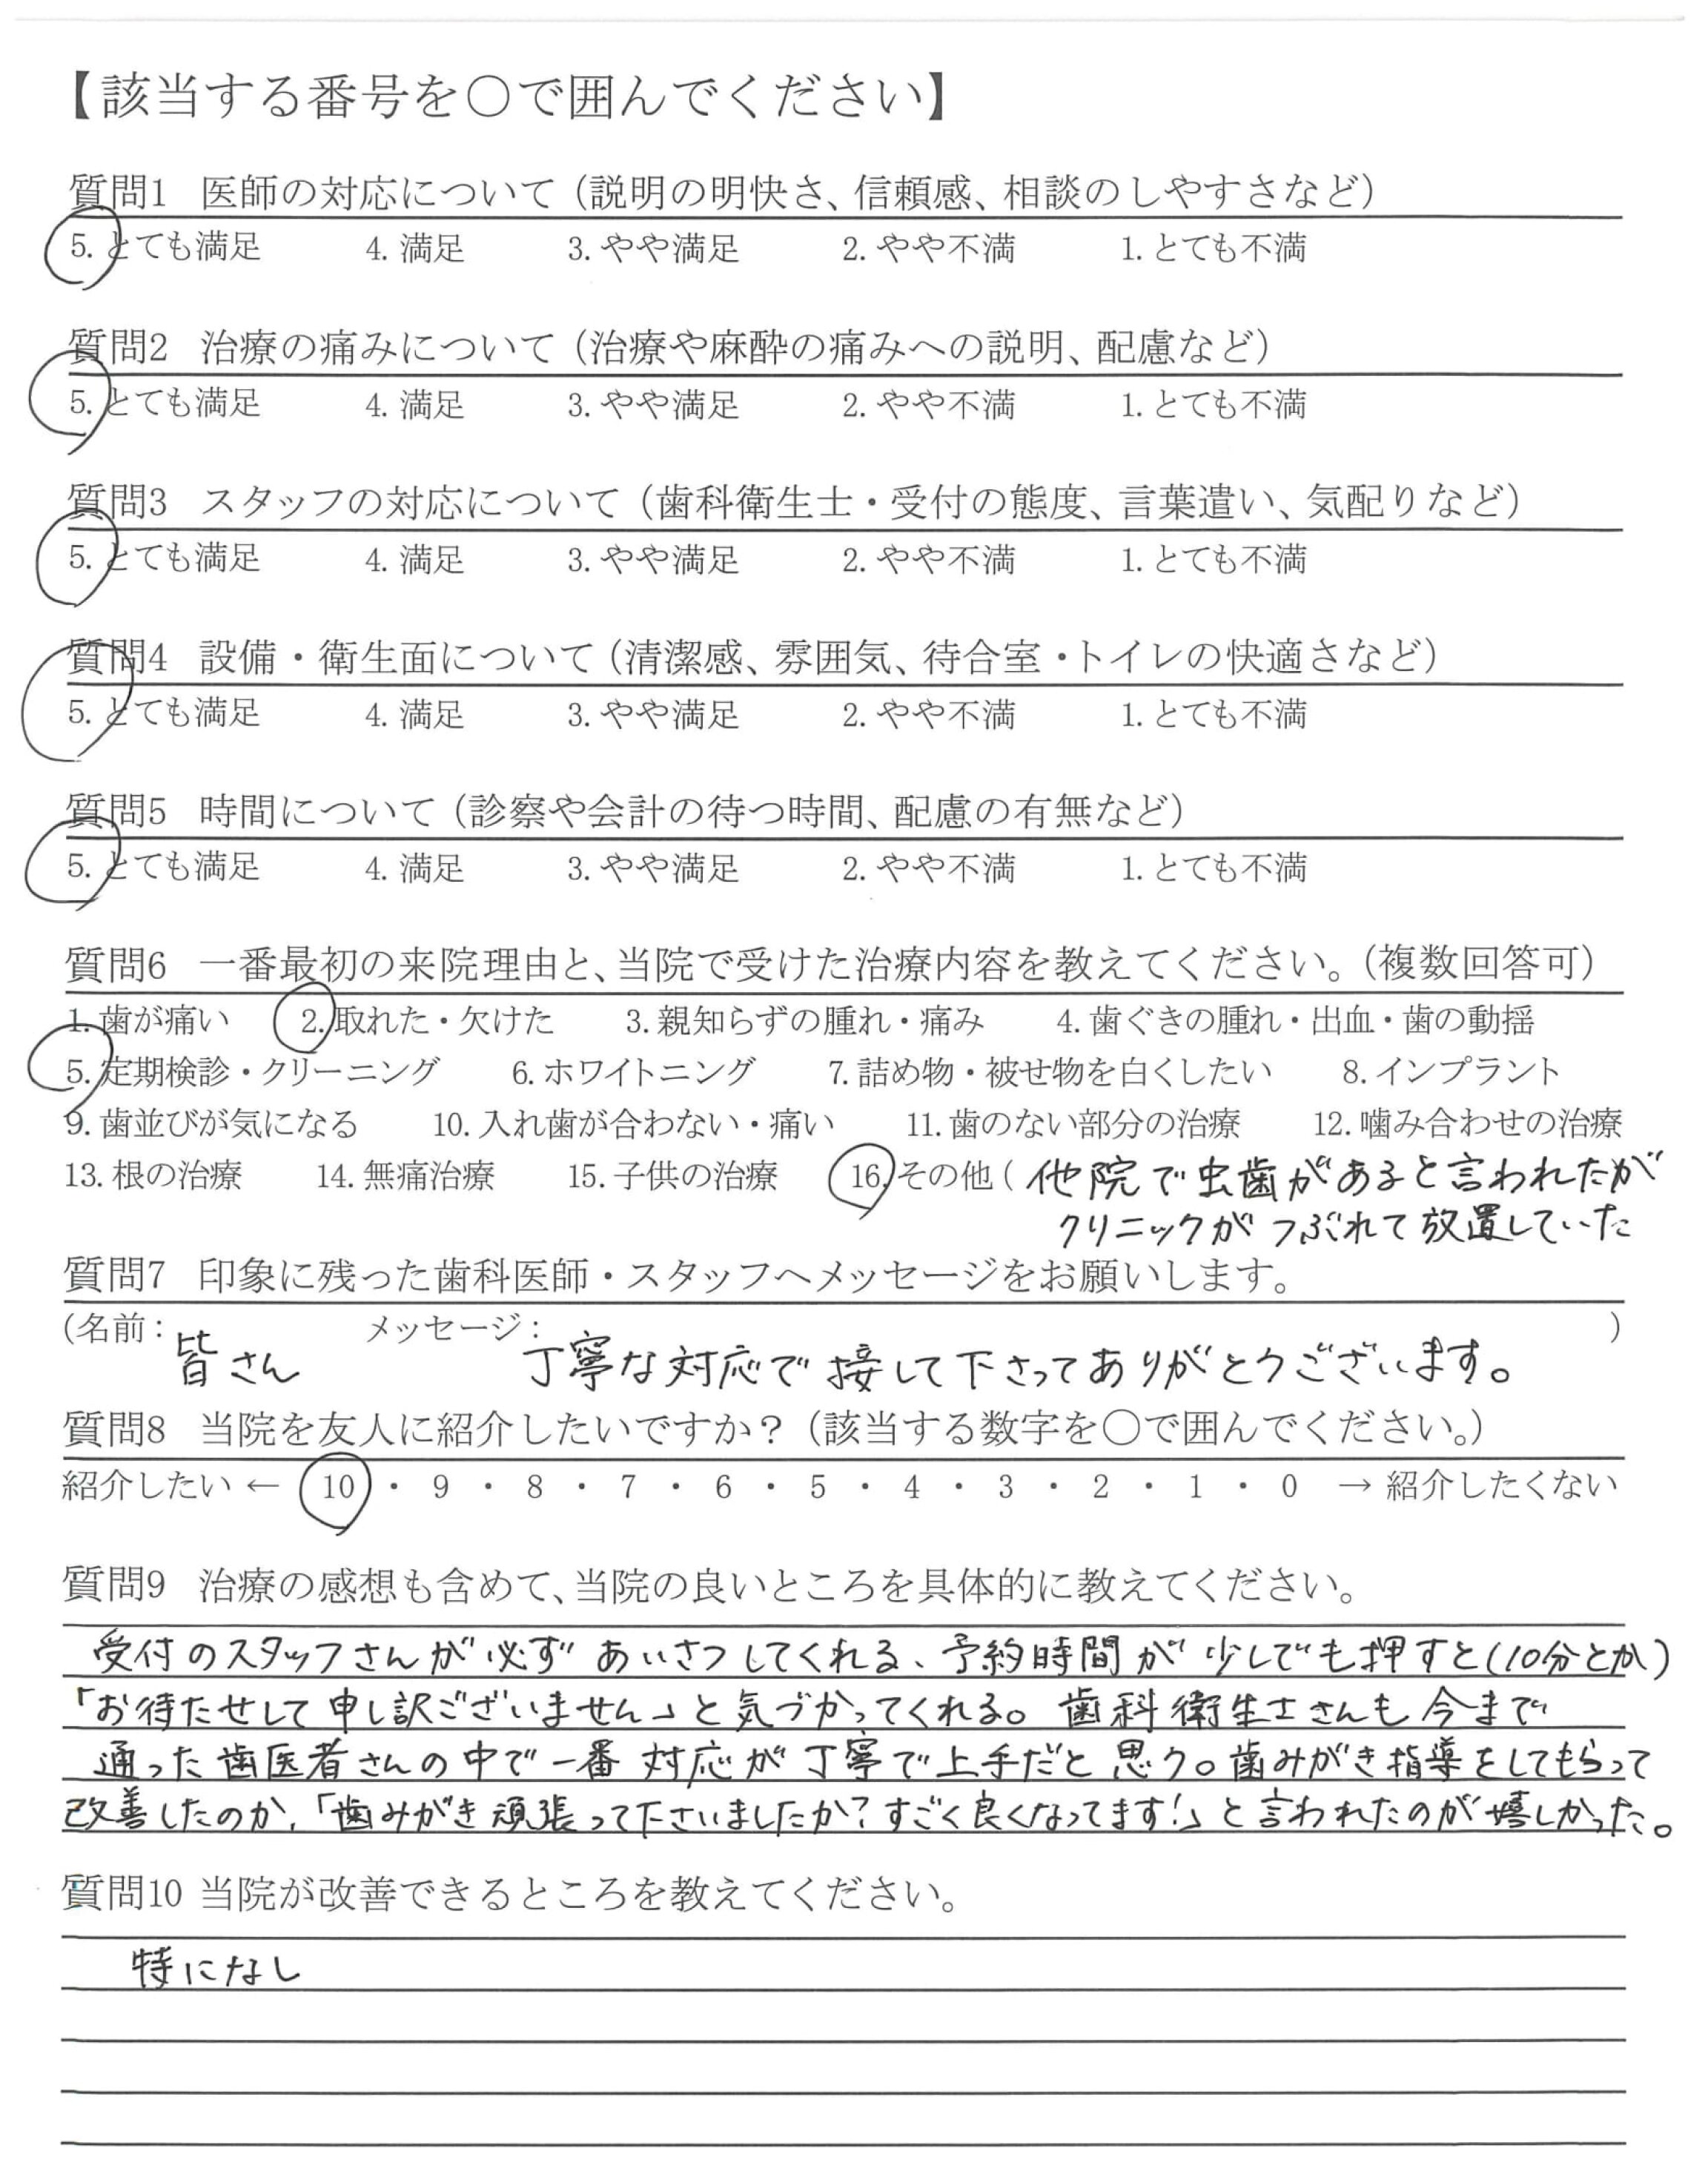 【該当する番号を〇で囲んでください】
質問1 医師の対応について（説明の明快さ、信頼感、相談のしやすさなど）
5. とても満足 4. 満足 3. やや満足 2. やや不満 1. とても不満
質問2 治療の痛みについて（治療や麻酔の痛みへの説明、配慮など）
5. とても満足 4. 満足 3. やや満足 2. やや不満 1. とても不満
質問3 スタッフの対応について（歯科衛生士・受付の態度、言葉遣い、気配りなど）
5. とても満足 4. 満足 3. やや満足 2. やや不満 1. とても不満
質問4 設備・衛生面について（清潔感、雰囲気、待合室・トイレの快適さなど）
5. とても満足 4. 満足 3. やや満足 2. やや不満 1. とても不満
質問5 時間について（診察や会計の待つ時間、配慮の有無など）
5. とても満足 4. 満足 3. やや満足 2. やや不満 1. とても不満
質問6 一番最初の来院理由と、当院で受けた治療内容を教えてください。（複数回答可）
1. 歯が痛い 2. 取れた・欠けた 3. 親知らずの腫れ・痛み 4. 歯ぐきの腫れ・出血・歯の動揺
5. 定期検診・クリーニング 6. ホワイトニング 7. 詰め物・被せ物を白くしたい 8. インプラント
9. 歯並びが気になる 10. 入れ歯が合わない・痛い 11. 歯のない部分の治療 12. 噛み合わせの治療
13. 根の治療 14. 無痛治療 15. 子供の治療 16. その他（ 他院で虫歯があると言われたが
クリニックがつぶれて放置していた
質問7 印象に残った歯科医師・スタッフへメッセージをお願いします。
（名前： メッセージ： ）
皆さん 丁寧な対応で接して下さってありがとうございます。
質問8 当院を友人に紹介したいですか？（該当する数字を〇で囲んでください。）
紹介したい ← 10 ・ 9 ・ 8 ・ 7 ・ 6 ・ 5 ・ 4 ・ 3 ・ 2 ・ 1 ・ 0 → 紹介したくない
質問9 治療の感想も含めて、当院の良いところを具体的に教えてください。
受付のスタッフさんが必ずあいさつしてくれる、予約時間が少しでも押すと(10分とか)
「お待たせして申し訳ございません」と気づかってくれる。歯科衛生士さんも今まで
通った歯医者さんの中で一番対応が丁寧で上手だと思う。歯みがき指導をしてもらって
改善したのか、「歯みがき頑張って下さいましたか？すごく良くなってます！」と言われたのが嬉しかった。
質問10 当院が改善できるところを教えてください。
特になし